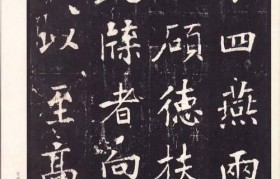 四燕雨
碩德扶
牒者向
以至高